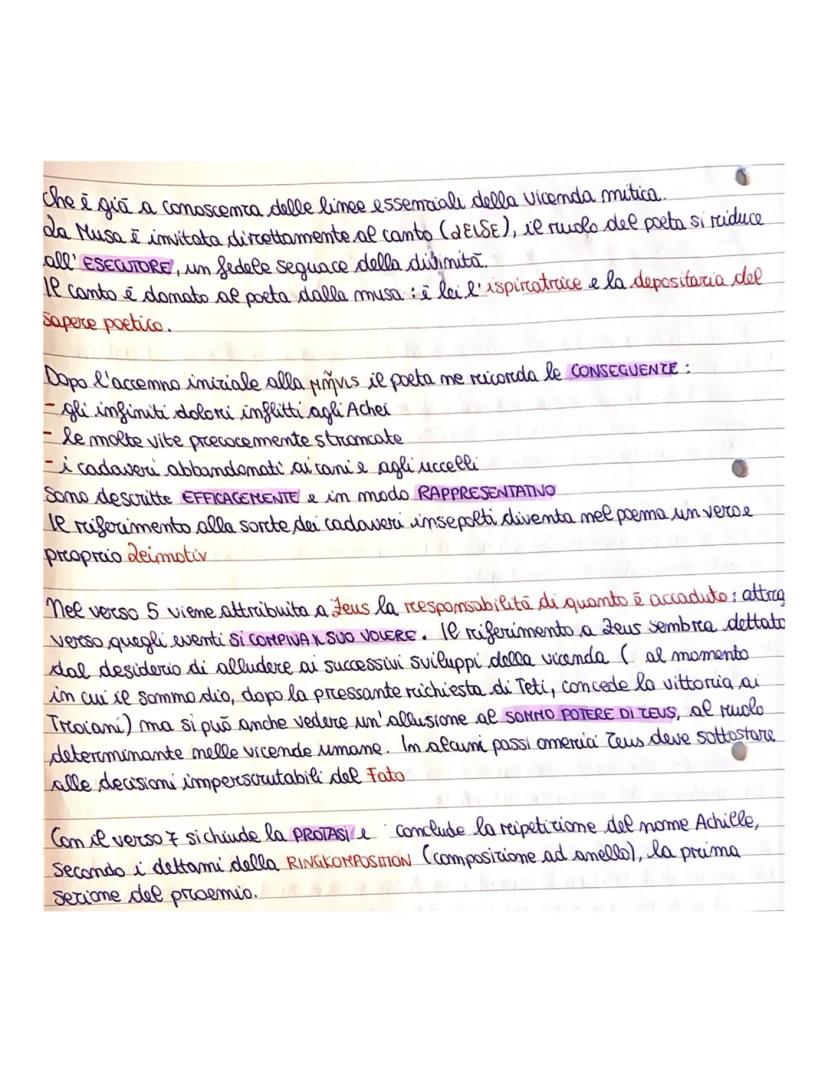 che è già a conoscenza delle linee essenziali della vicenda mitica.
La Musa è invitata direttamente al canto (ἀEιδE), il ruolo del poeta si riduce
all'ESECUTORE, un fedele seguace della divinità.
Il canto è donato al poeta dalla musa: è lei l'ispiratrice e la depositaria del
sapere poetico.
Dopo l'accenno iniziale alla μῆνις il poeta ne ricorda le CONSEGUENZE:
- gli infiniti dolori inflitti agli Achei
- le molte vite precocemente stroncate
- i cadaveri abbandonati ai cani e agli uccelli
Sono descritte EFFICACEMENTE e in modo RAPPRESENTATIVO
Il riferimento alla sorte dei cadaveri insepolti diventa nel poema un vero e
proprio leimotiv
Nel verso 5 viene attribuita a Zeus la responsabilità di quanto è accaduto: attra
verso quegli eventi SI COMPIVA IL SUO VOLERE. Il riferimento a Zeus sembra dettato
dal desiderio di alludere ai successivi sviluppi della vicenda ( al momento
in cui il sommo dio, dopo la pressante richiesta di Teti, concede la vittoria ai
Troiani) ma si può anche vedere un'allusione al SOMMO POTERE DI ZEUS, al ruolo
determinante nelle vicende umane. In alcuni passi omerici Zeus deve sottostare
alle decisioni imperscrutabili del Fato
Con il verso 7 si chiude la PROTASI e conclude la ripetizione del nome Achille,
secondo i dettami della RINGKOMPOSITION (composizione ad anello), la prima
sezione del proemio.